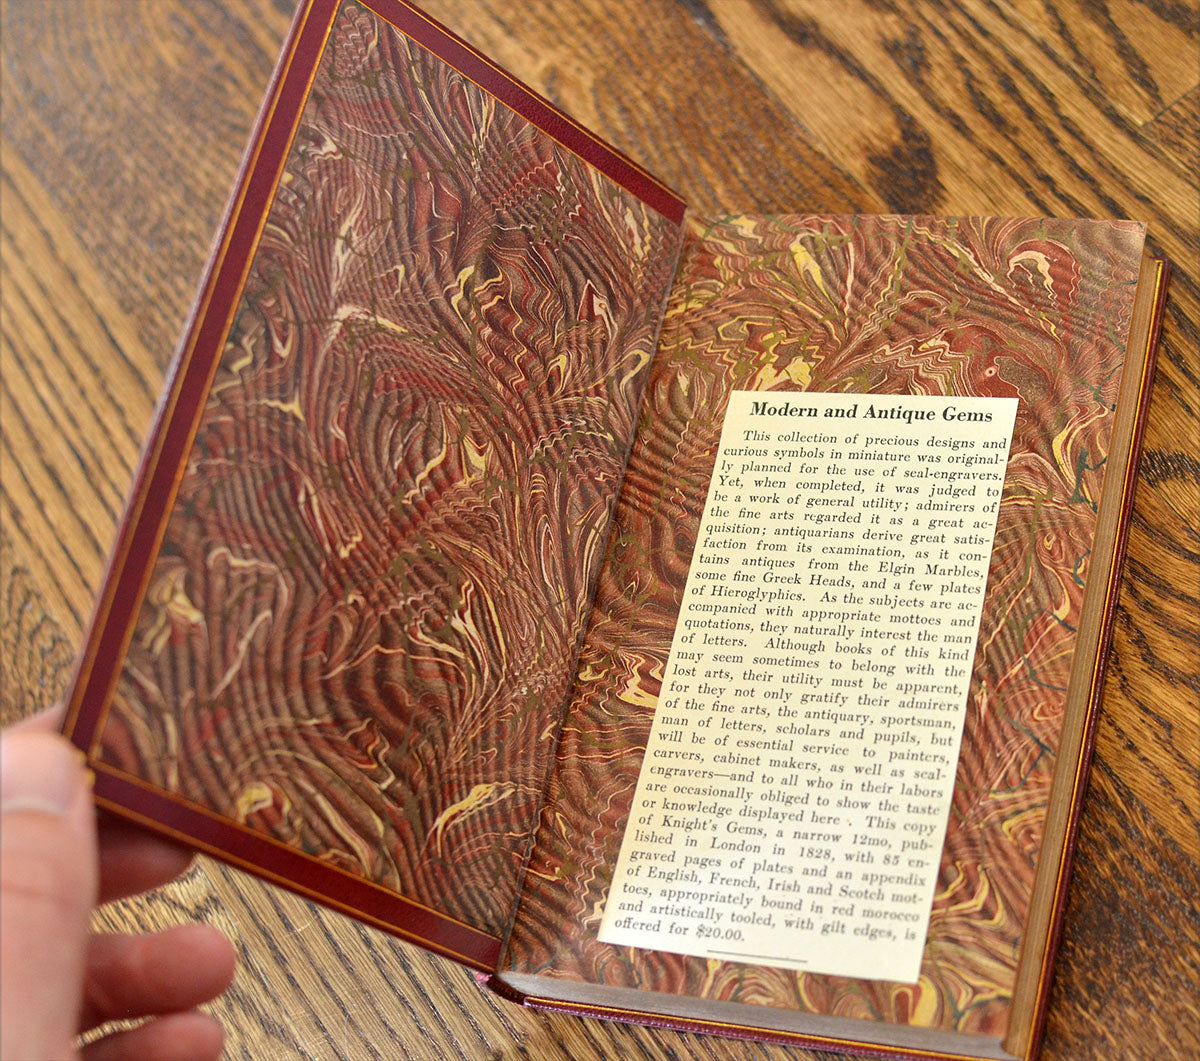 Modern and Antique Gems
This collection of precious designs and
curious symbols in miniature was original-
ly planned for the use of seal-engravers.
Yet, when completed, it was judged to
be a work of general utility; admirers of
the fine arts regarded it as a great ac-
quisition; antiquarians derive great satis-
faction from its examination, as it con-
tains antiques from the Elgin Marbles,
some fine Greek Heads, and a few plates
of Hieroglyphics. As the subjects are ac-
companied with appropriate mottoes and
quotations, they naturally interest the man
of letters. Although books of this kind
may seem sometimes to belong with the
lost arts, their utility must be apparent,
for they not only gratify their admirers
of the fine arts, the antiquary, sportsman,
man of letters, scholars and pupils, but
will be of essential service to painters,
carvers, cabinet makers, as well as seal-
engravers—and to all who in their labors
are occasionally obliged to show the taste
or knowledge displayed here . This copy
of Knight's Gems, a narrow 12mo, pub-
lished in London in 1828, with 85 en-
graved pages of plates and an appendix
of English, French, Irish and Scotch mot-
toes, appropriately bound in red morocco
and artistically tooled, with gilt edges, is
offered for $20.00.